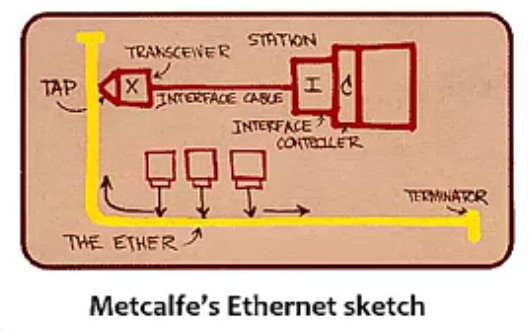 STATION
TRANSCEIVER
TAP
X
I
C
INTERFACE CABLE
INTERFACE
CONTROLLER
TERMINATOR
THE ETHER
Metcalfe's Ethernet sketch